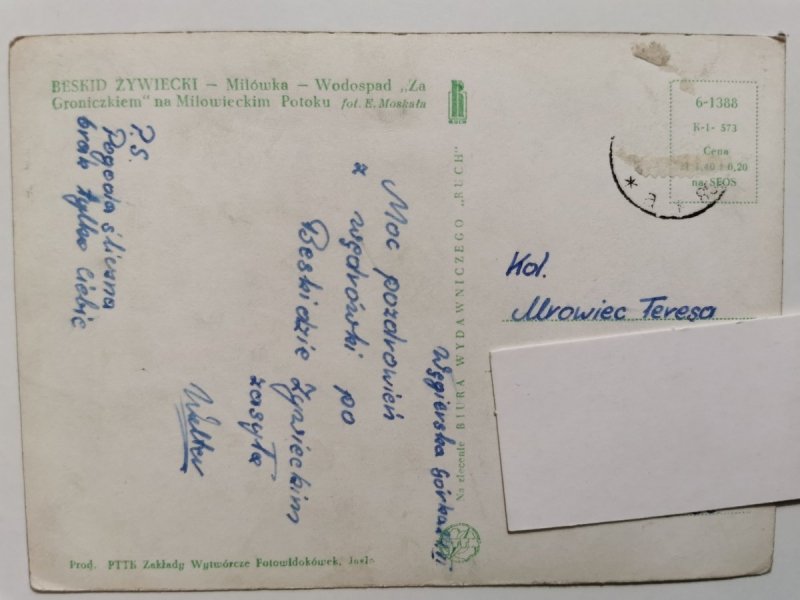 BESKID ŻYWIECKI — Milówka — Wodospad „Za
Groniczkiem" na Milowieckim Potoku fot. E. Moskała
RUCH
6-1388
K-1- 573
Cena
1,40 + 0,20
na SFOS
Węgierska Górka
Moc pozdrowień
z wędrówki po
Beskidzie Żywieckim
zasyła
Walter
P.S.
Pogoda śliczna
brak tylko Ciebie
Na zlecenie BIURA WYDAWNICZEGO „RUCH"
Kol.
Mrowiec Teresa
Prod. PTTK Zakłady Wytwórcze Fotowidokówek,